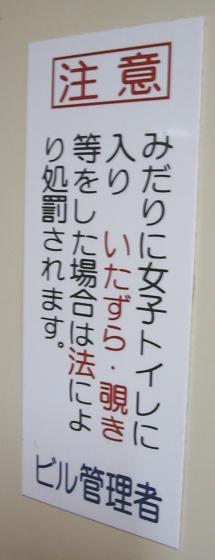 注意
みだりに女子トイレに
入り いたずら・覗き
等をした場合は法によ
り処罰されます。
ビル管理者